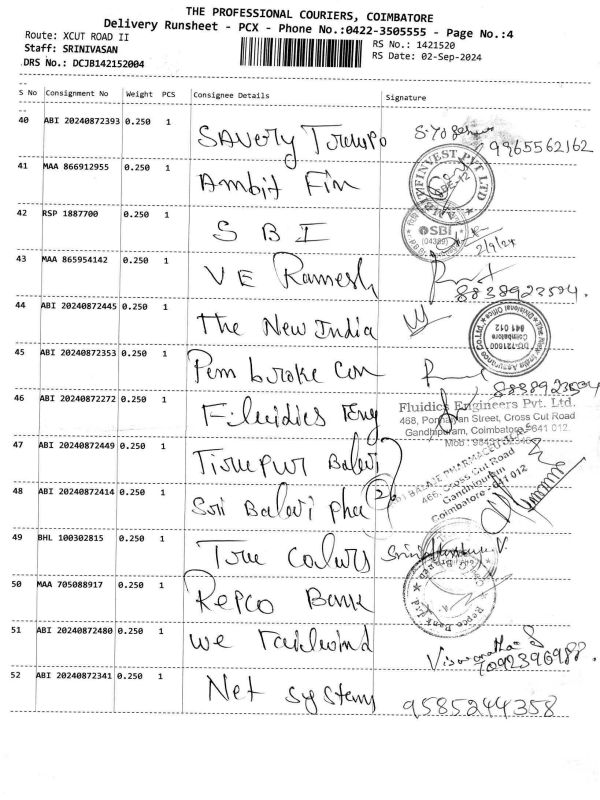 THE PROFESSIONAL COURIERS, COIMBATORE
Delivery Runsheet - PCX - Phone No.:0422-3505555 - Page No.:4
Route: XCUT ROAD II
RS No.: 1421520
Staff: SRINIVASAN
RS Date: 02-Sep-2024
DRS No.: DCJB142152004
S No Consignment No Weight PCS Consignee Details Signature
40 ABI 20240872393 0.250 1 SAVERY
9965562162
41 MAA 866912955 0.250 1 Ambit Fin
42 RSP 1887700 0.250 1 SBI
SBI
2/9/24
43 MAA 865954142 0.250 1 VE Ramesh
8838923504.
44 ABI 20240872445 0.250 1 The New India
The New India Assurance Co.Ltd.
Divisional Office
Coimbatore
641 012
45 ABI 20240872353 0.250 1 Pem broke Con
8838923504
46 ABI 20240872272 0.250 1 Fluidics Eng
Fluidics Engineers Pvt. Ltd.
468, Ponnaiyan Street, Cross Cut Road
Gandhipuram, Coimbatore-641 012.
47 ABI 20240872449 0.250 1 Tirupur Balaji
BALAJI PHARMACEUTICALS
466, Cross Cut Road
Gandhipuram
Coimbatore - 641 012
48 ABI 20240872414 0.250 1 Sri Balaji pha
26
49 BHL 100302815 0.250 1 True colours
50 MAA 705088917 0.250 1 Repco Bank
Repco Bank Ltd
51 ABI 20240872480 0.250 1 we Tailwind
52 ABI 20240872341 0.250 1 Net systems
9585244358